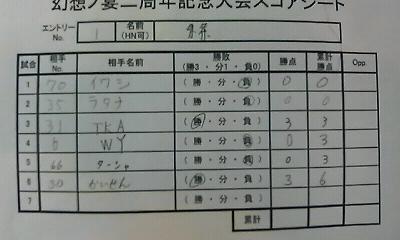 幻想ノ宴二周年記念大会スコアシート
エントリー No. 1 名前 (HN可)
試合 相手 No. 相手名前 勝敗 (勝3・分1・負0) 勝点 累計勝点 Opp.
1 70 イワシ (勝・分・負) 0 0
2 35 ラタナ (勝・分・負) 0 0
3 31 TKA (勝・分・負) 3 3
4 6 WY (勝・分・負) 0 3
5 66 ターシャ (勝・分・負) 0 3
6 30 かいせん (勝・分・負) 3 6
7 (勝・分・負)
累計